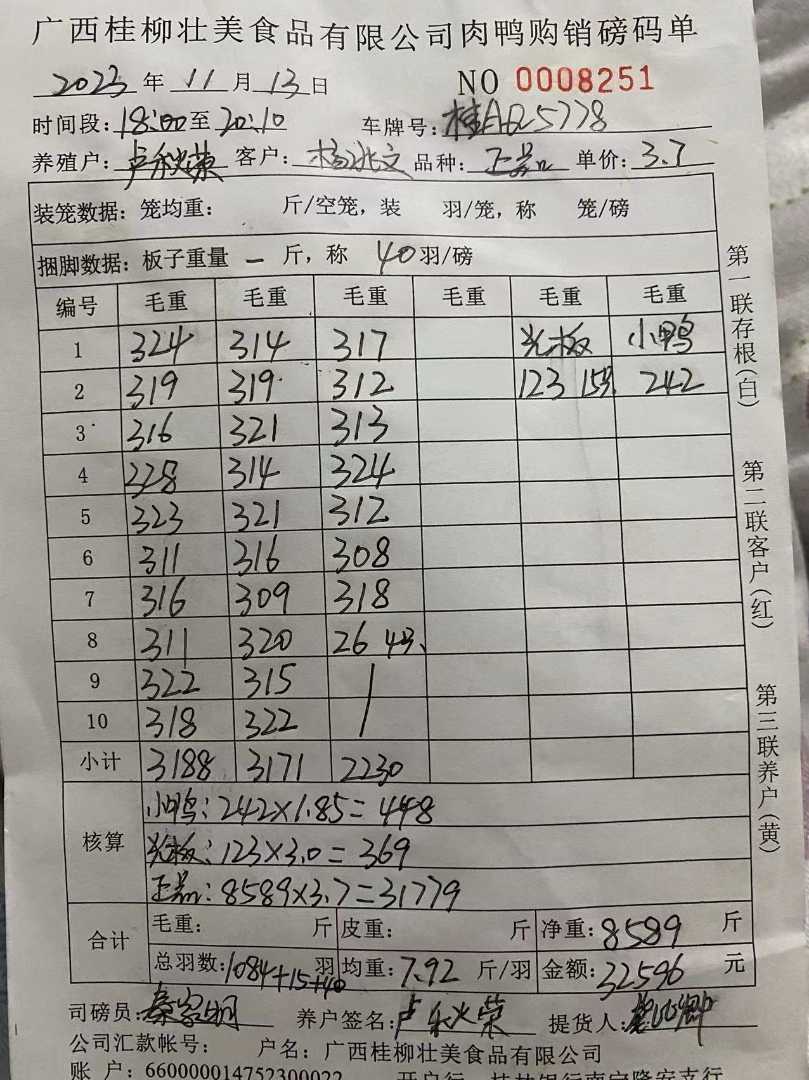 广西桂柳壮美食品有限公司肉鸭购销磅码单
2023 年 11 月 13 日 NO 0008251
时间段: 18:00 至 20:10 车牌号: 桂A
养殖户: 卢 荣 客户: 杨 文 品种: 正品 单价: 3.7
装笼数据: 笼均重: 斤/空笼, 装 羽/笼, 称 笼/磅
捆脚数据: 板子重量 一 斤, 称 40 羽/磅
编号 毛重 毛重 毛重 毛重 毛重 毛重
1 324 314 317 光板 小鸭
2 319 319 312 123 15只 242
3 316 321 313
4 328 314 324
5 323 321 312
6 311 316 308
7 316 309 318
8 311 320 26 4只
9 322 315
10 318 322
小计 3188 3171 2230
核算
小鸭: 242×1.85=448
光板: 123×3.0=369
正品: 8589×3.7=31779
合计 毛重: 斤 皮重: 斤 净重: 8589 斤
总羽数: 1084+15+40 羽 均重: 7.92 斤/羽 金额: 32596 元
司磅员: 秦家明 养户签名: 卢 荣 提货人:
公司汇款帐号: 户名: 广西桂柳壮美食品有限公司
账 户: 660000014752300022 开户行: 桂林银行南宁隆安支行
第一联存根(白)
第二联客户(红)
第三联养户(黄)